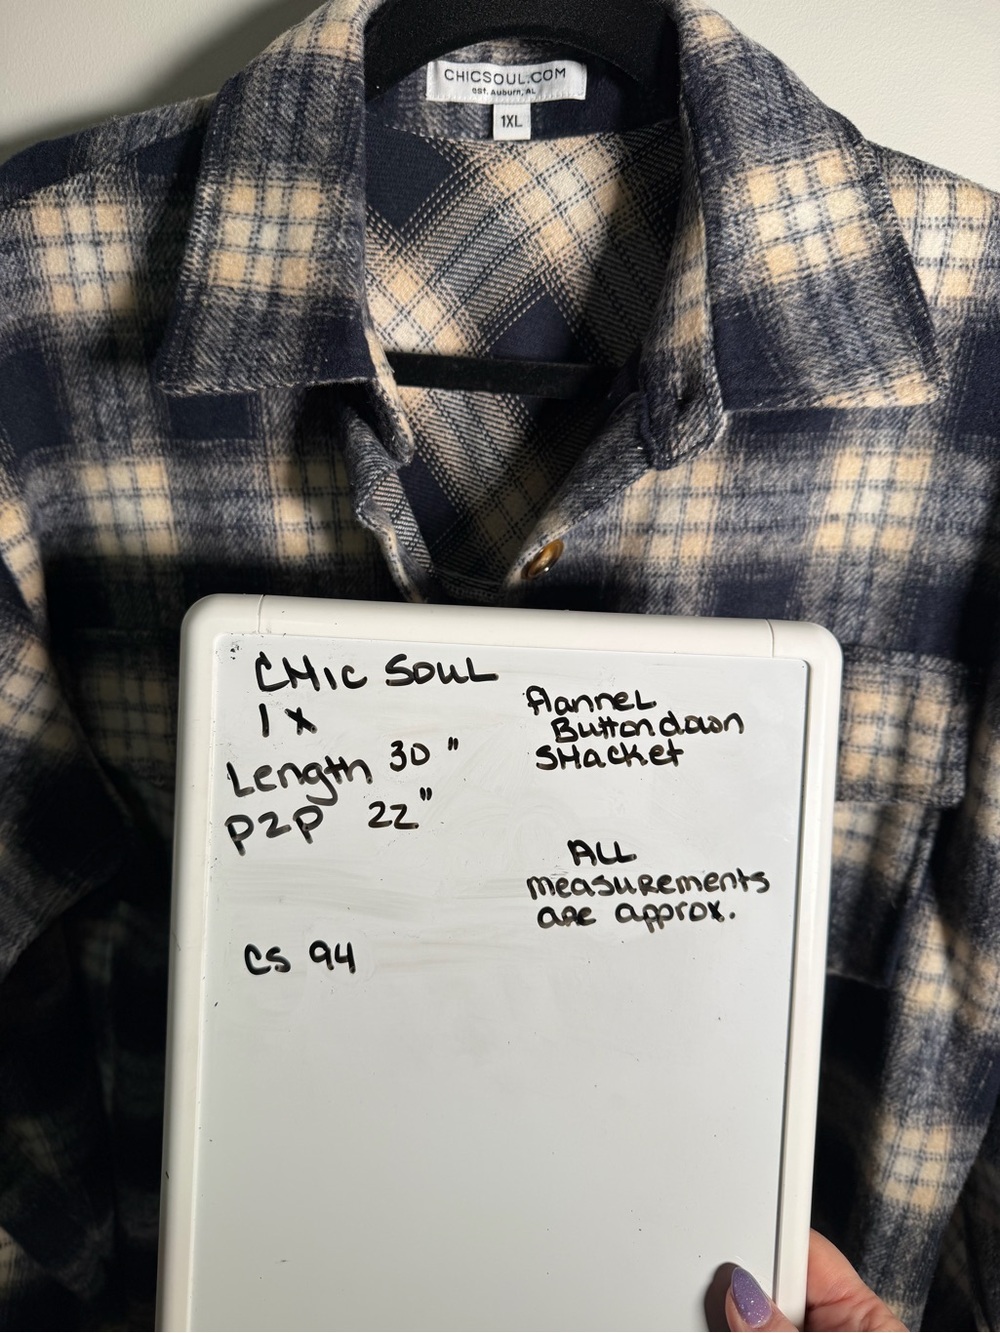 CHICSOUL.COM
est. Auburn, AL
1XL
CHic SOUL
1 X
Length 30 "
P2P 22"
CS 94
flannel
Button down
SHacket
ALL
measurements
are approx.